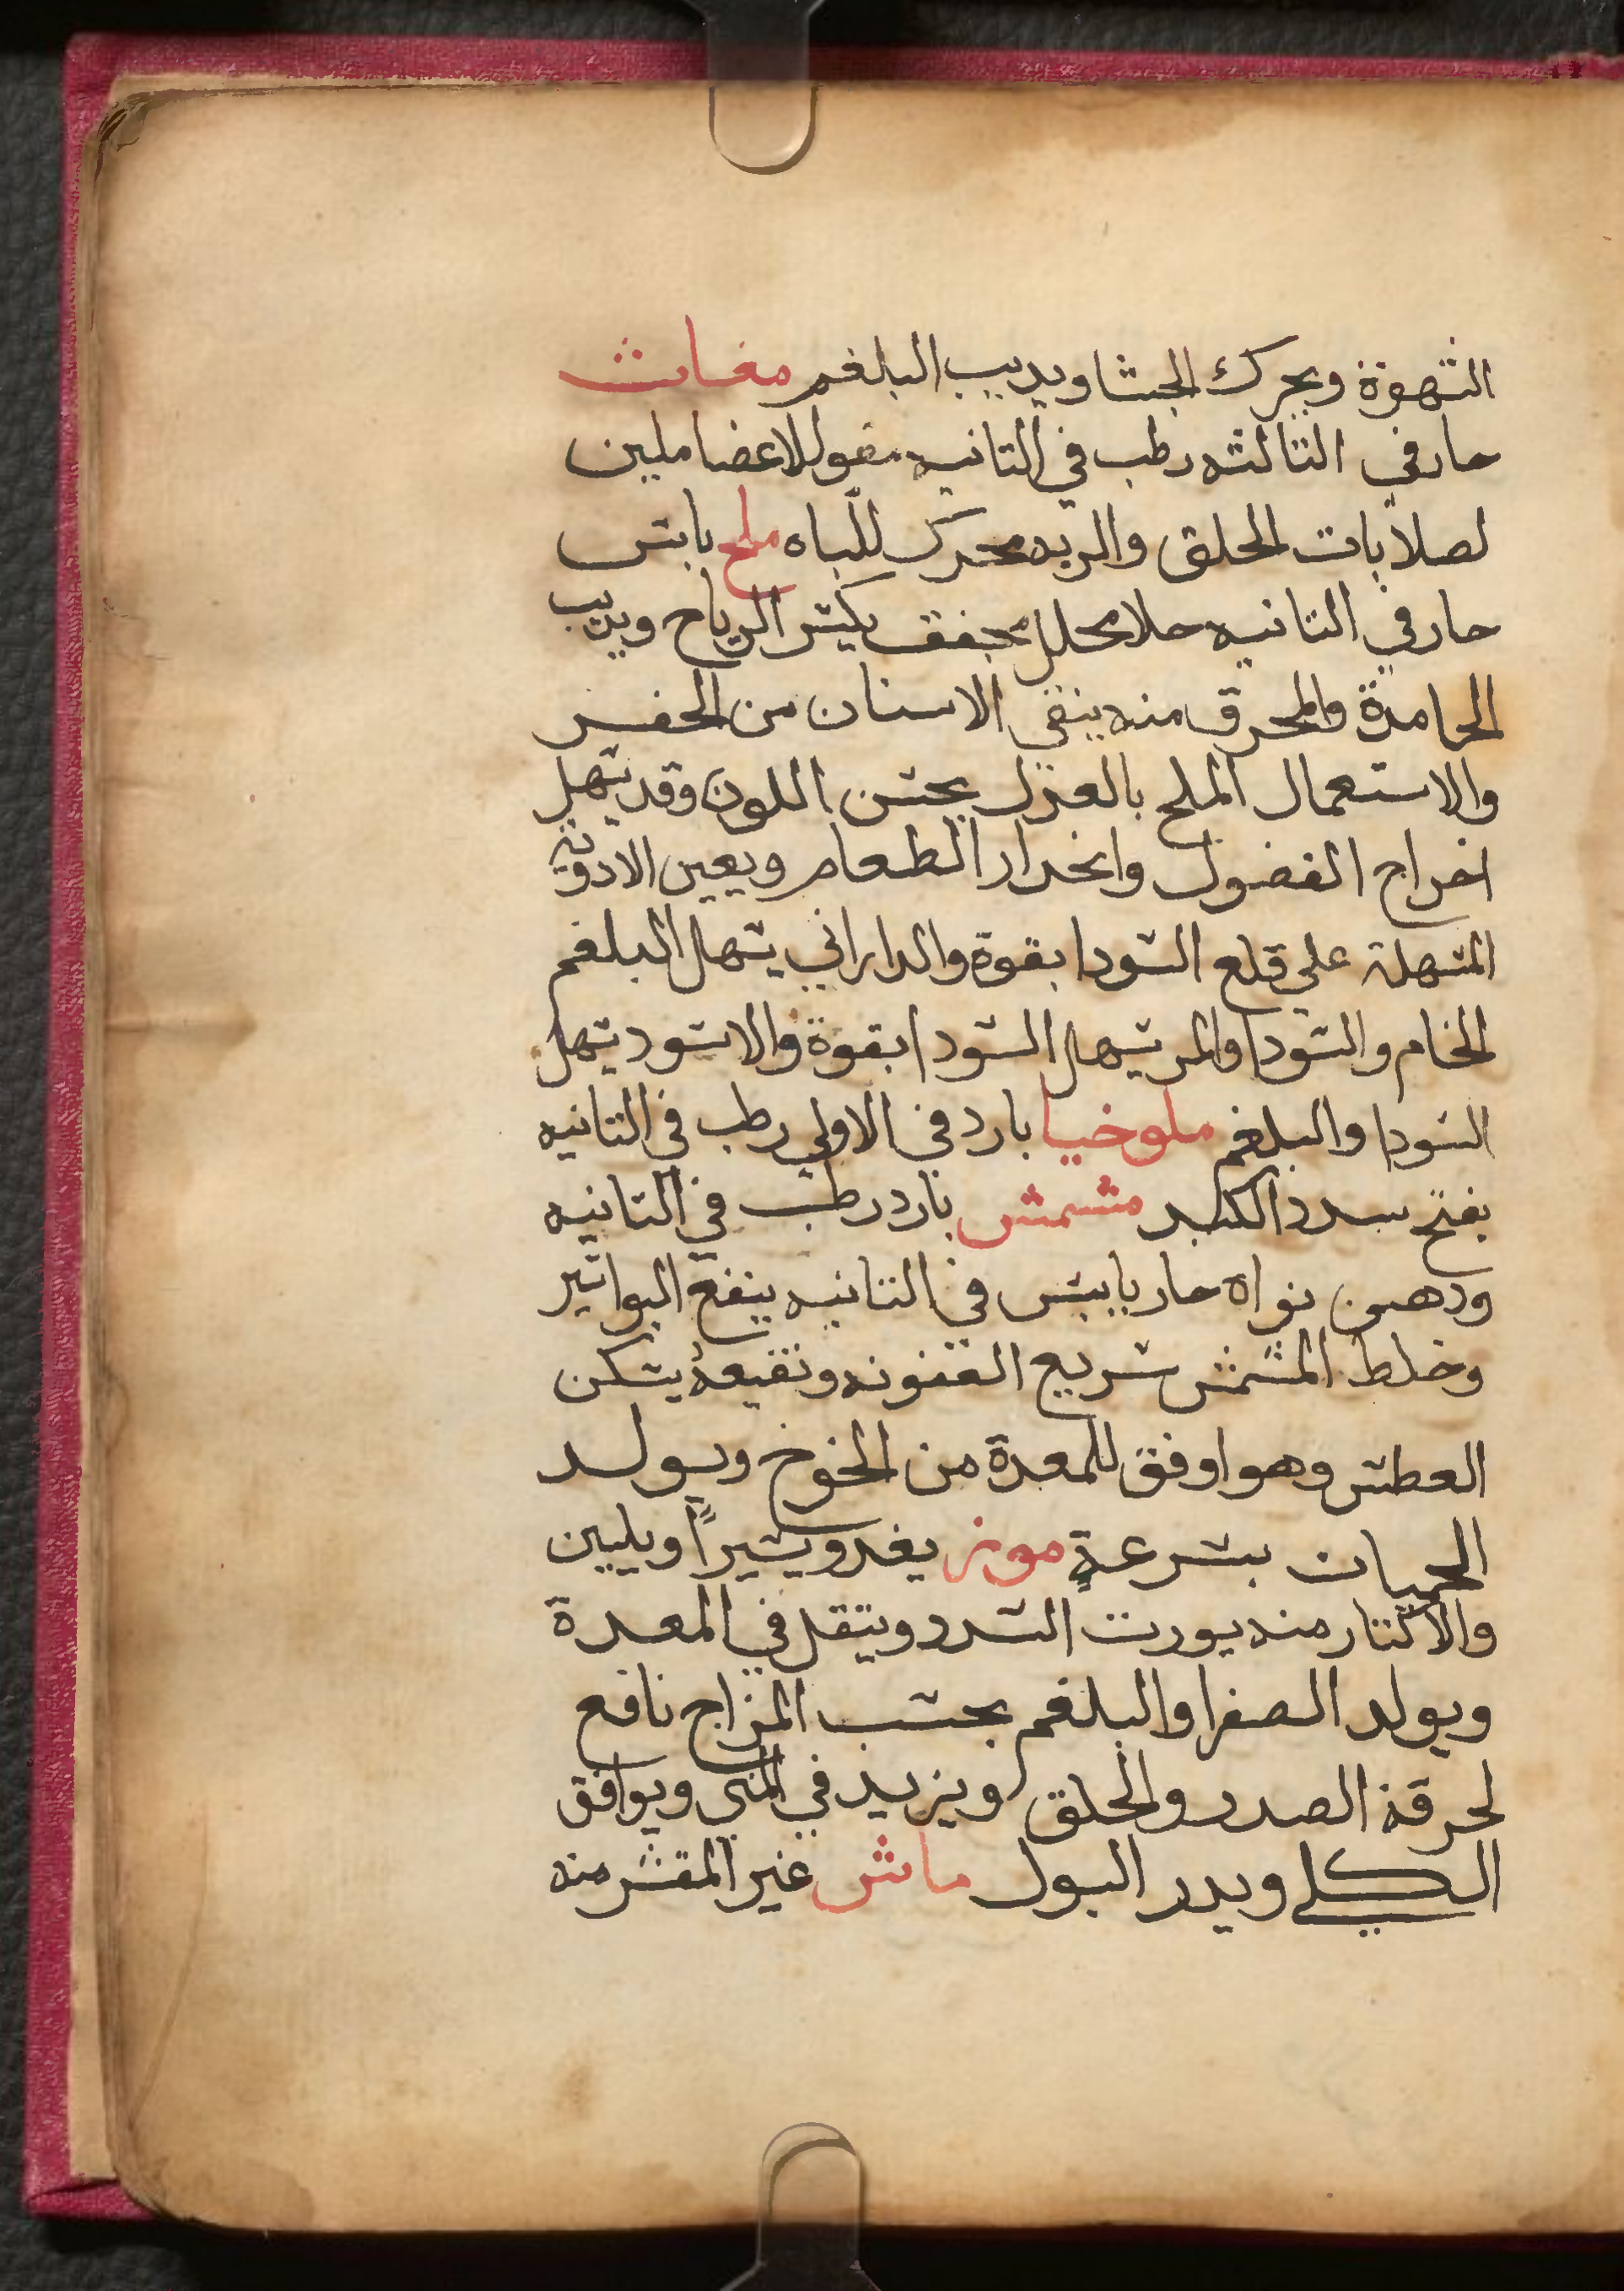 الشهوة ويحرك الجشا ويديب البلغم مغاث
حار في الثالثه رطب في التانيه مقو للاعضا ملين
لصلابات الحلق والريه محرك للباه ملح يابس
حار في التانيه جلا محلل مجفف يكسر الرياح ويديب
الجامدة والمحرق منه ينقي الاسنان من الحفر
والاستعمال الملح بالعدل يحسن اللون وقد يسهل
اخراج الفضول وانحدار الطعام ويعين الادوية
المسهلة علي قلع السودا بقوة والداراني يسهل البلغم
الخام والسودا والمر يسهل السودا بقوة والاسود يسهل
السودا والبلغم ملوخيا بارد في الاولي رطب في التانيه
يفتح سدد الكبد مشمش بارد رطب في التانيه
ودهن نواه حار يابس في التانيه ينفع البواسير
وخلط المشمش سريع العفونه ونقيعه يسكن
العطش وهو اوفق للمعدة من الخوخ ويولد
الحميات بسرعة موز يغدو يسيراً ويليين
والاكتار منه يورت السدد ويتقل في المعدة
ويولد الصفرا والبلغم بحسب المزاج نافع
لحرقة الصدر والحلق ويزيد في المني ويوافق
الكلي ويدر البول ماش غير المقشر منه